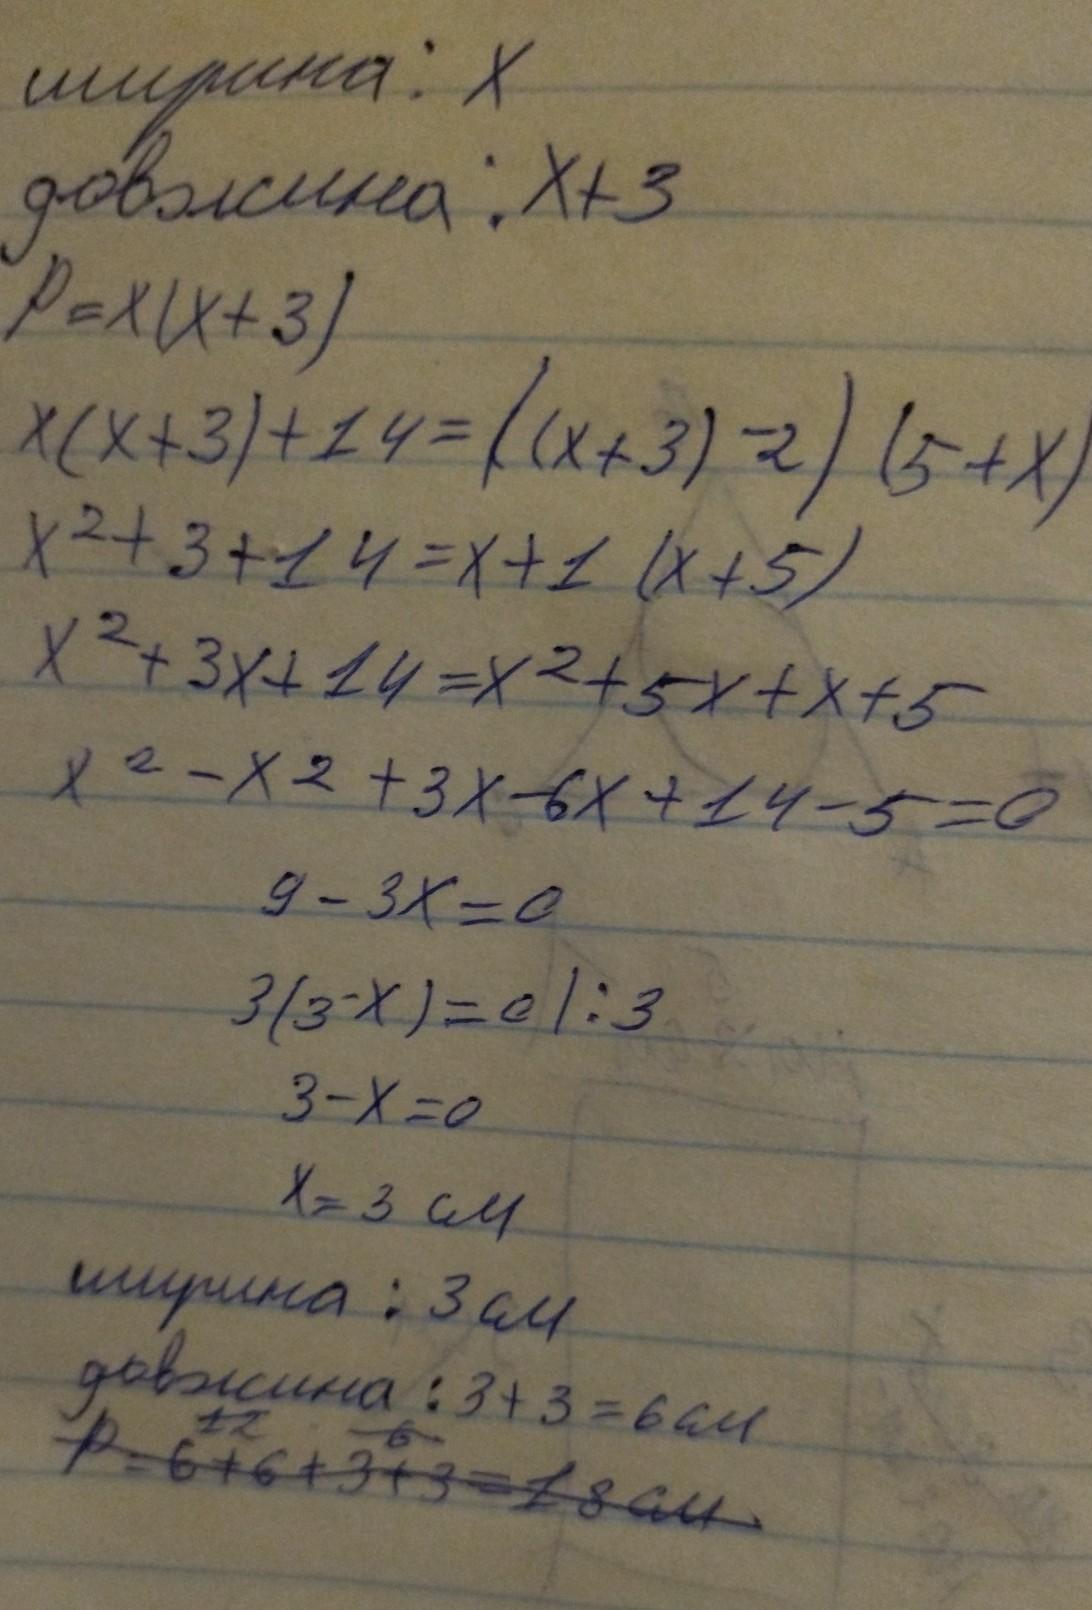 ширина: x
довжина: x+3
P=x(x+3)
x(x+3)+14=((x+3)-2)(5+x)
x²+3+14=x+1(x+5)
x²+3x+14=x²+5x+x+5
x²-x2+3x-6x+14-5=0
9-3x=0
3(3-x)=0|:3
3-x=0
x=3 см
ширина: 3см
довжина: 3+3=6см
12 6
P=6+6+3+3=18см.